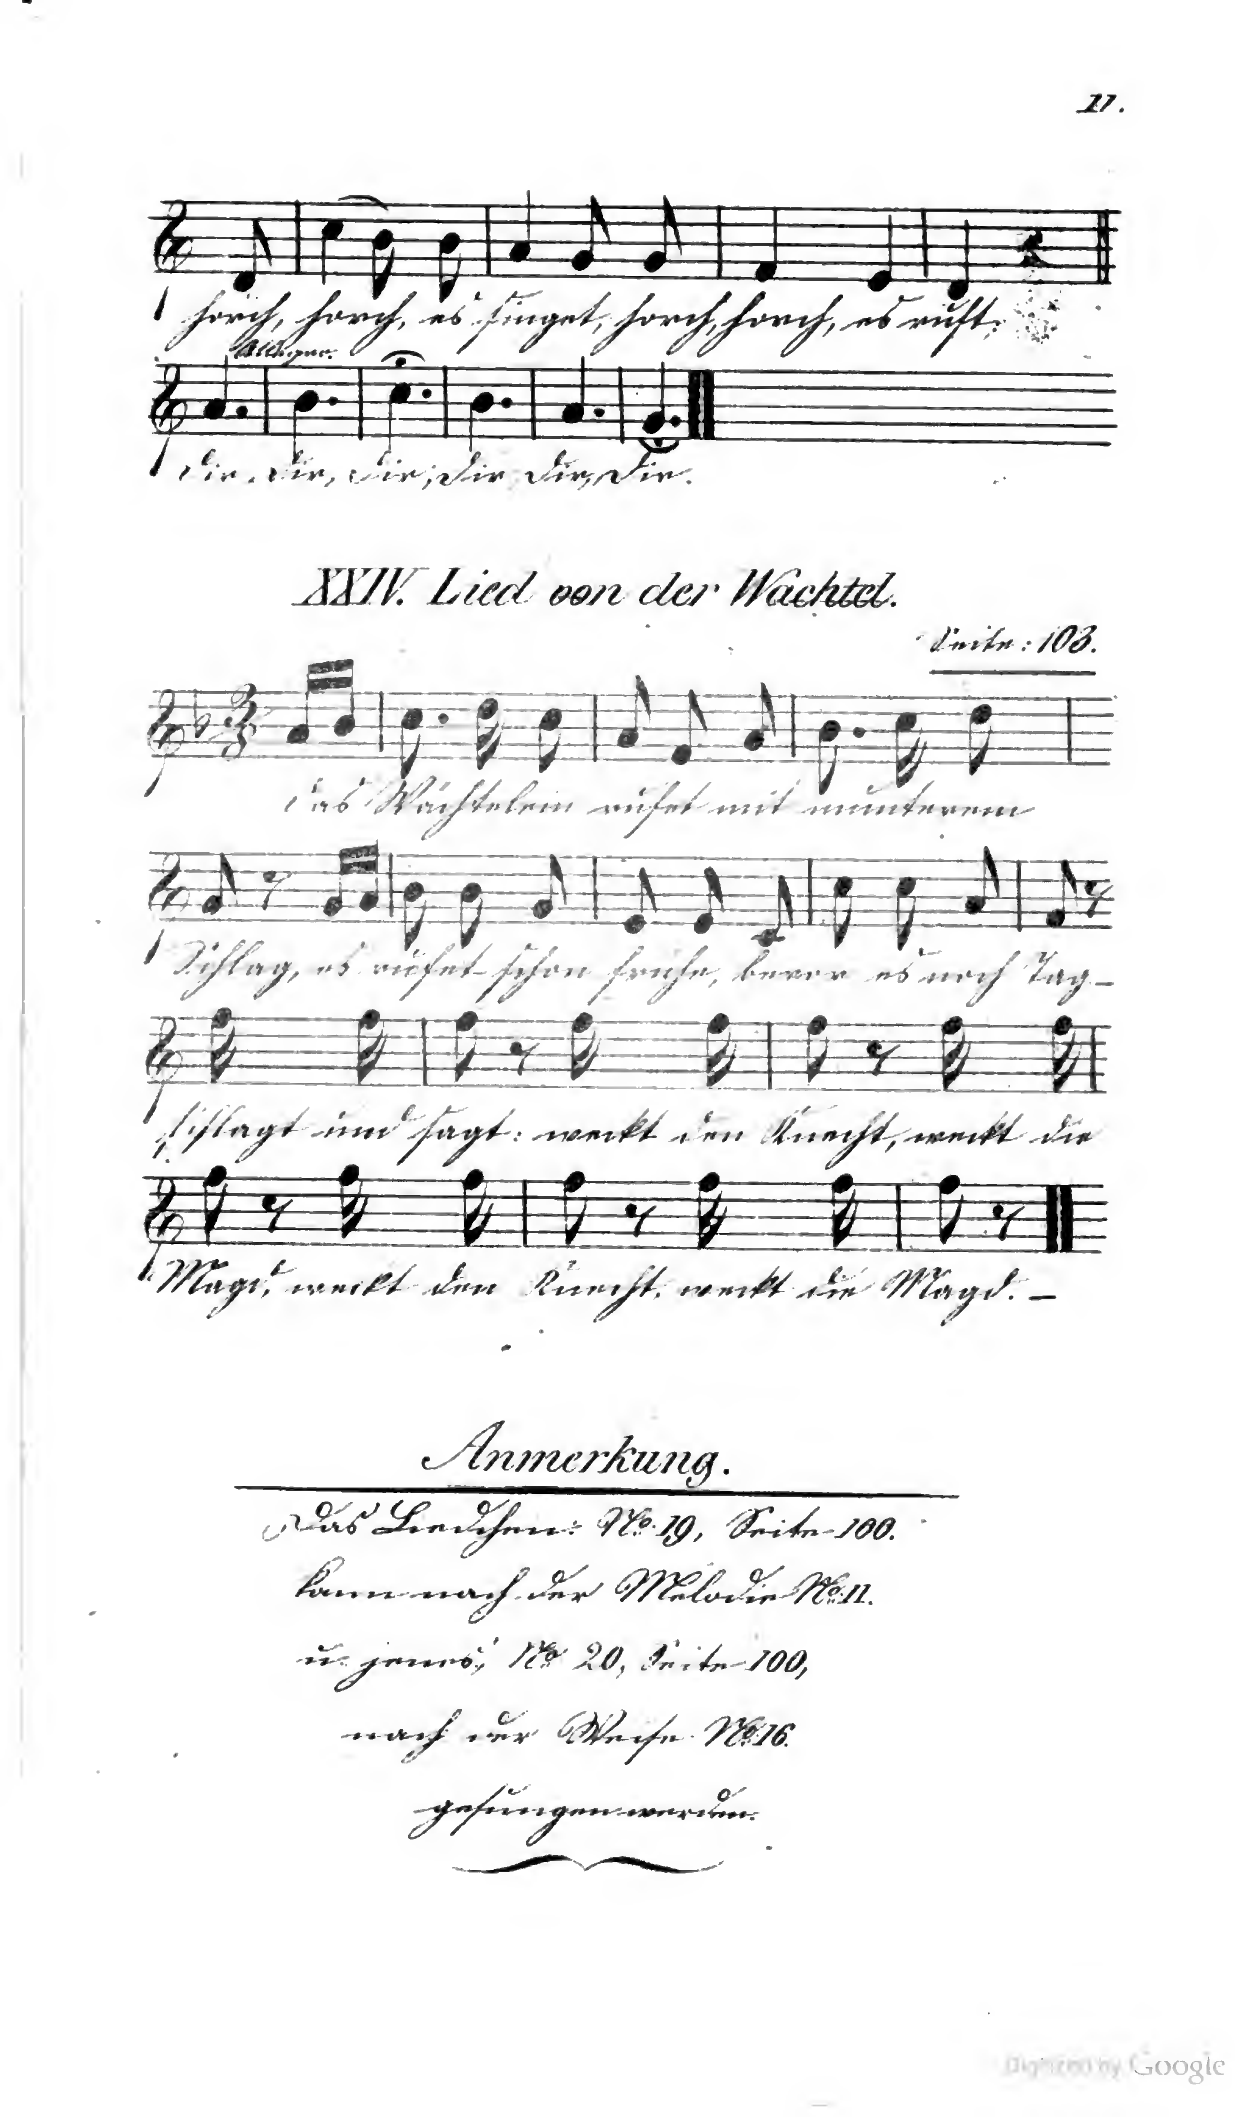 11.
horch, horch, es singet, horch, horch, es ruft:
Dir, Dir, Dir, Dir, Dir, Dir.
XXIV. Lied von der Wachtel.
Seite: 103.
das Wachtelein rufet mit munterem
Schlag, es rufet schon fruhe, bevor es noch Tag-
schlagt und sagt: weckt den Knecht, weckt die
Magd, weckt den Knecht, weckt die Magd. –
Anmerkung.
Das Liedchen: No. 19, Seite 100.
kann nach der Melodie No. 11.
u. jenes, No 20, Seite 100,
nach der Weise No. 16.
gesungen werden.
Digitized by Google